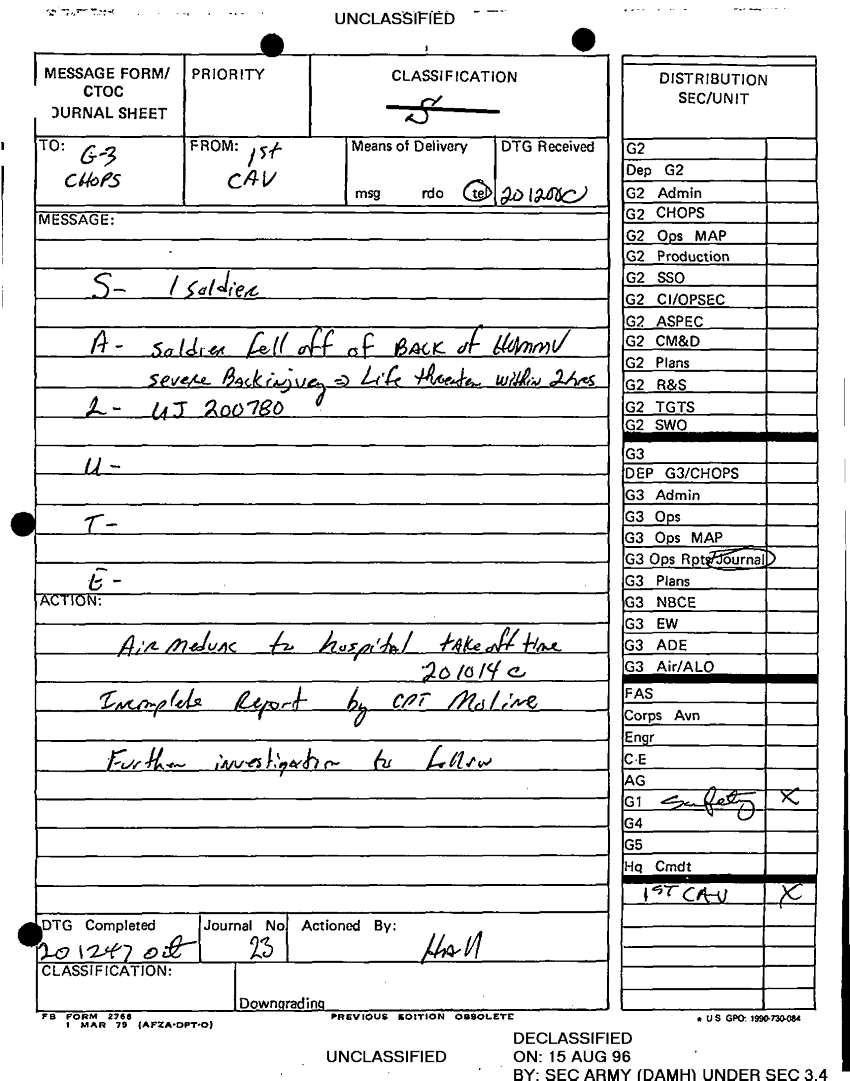 UNCLASSIFIED
MESSAGE FORM/
CTOC
JOURNAL SHEET
PRIORITY
CLASSIFICATION
S
TO: G-3
CHOPS
FROM: 1st
CAV
Means of Delivery
msg rdo tel
DTG Received
201200C
MESSAGE:
S- 1 soldier
A- soldier fell off of BACK of HUMMV
severe Back injury => Life threaten within 2hrs
L- UJ 200780
U-
T-
E-
ACTION:
Air medvac to hospital takeoff time
201014 C
Incomplete Report by CPT Moline
Further investigation to follow
DTG Completed
201247 Oct
Journal No
23
Actioned By:
Hall
CLASSIFICATION:
Downgrading
FB FORM 2768
1 MAR 79 (AFZA-DPT-O)
PREVIOUS EDITION OBSOLETE
DISTRIBUTION
SEC/UNIT
G2
Dep G2
G2 Admin
G2 CHOPS
G2 Ops MAP
G2 Production
G2 SSO
G2 CI/OPSEC
G2 ASPEC
G2 CM&D
G2 Plans
G2 R&S
G2 TGTS
G2 SWO
G3
DEP G3/CHOPS
G3 Admin
G3 Ops
G3 Ops MAP
G3 Ops Rpts/Journal
G3 Plans
G3 NBCE
G3 EW
G3 ADE
G3 Air/ALO
FAS
Corps Avn
Engr
C-E
AG
G1 Safety X
G4
G5
Hq Cmdt
1ST CAV X
* U S GPO: 1990-730-084
UNCLASSIFIED
DECLASSIFIED
ON: 15 AUG 96
BY: SEC ARMY (DAMH) UNDER SEC 3.4